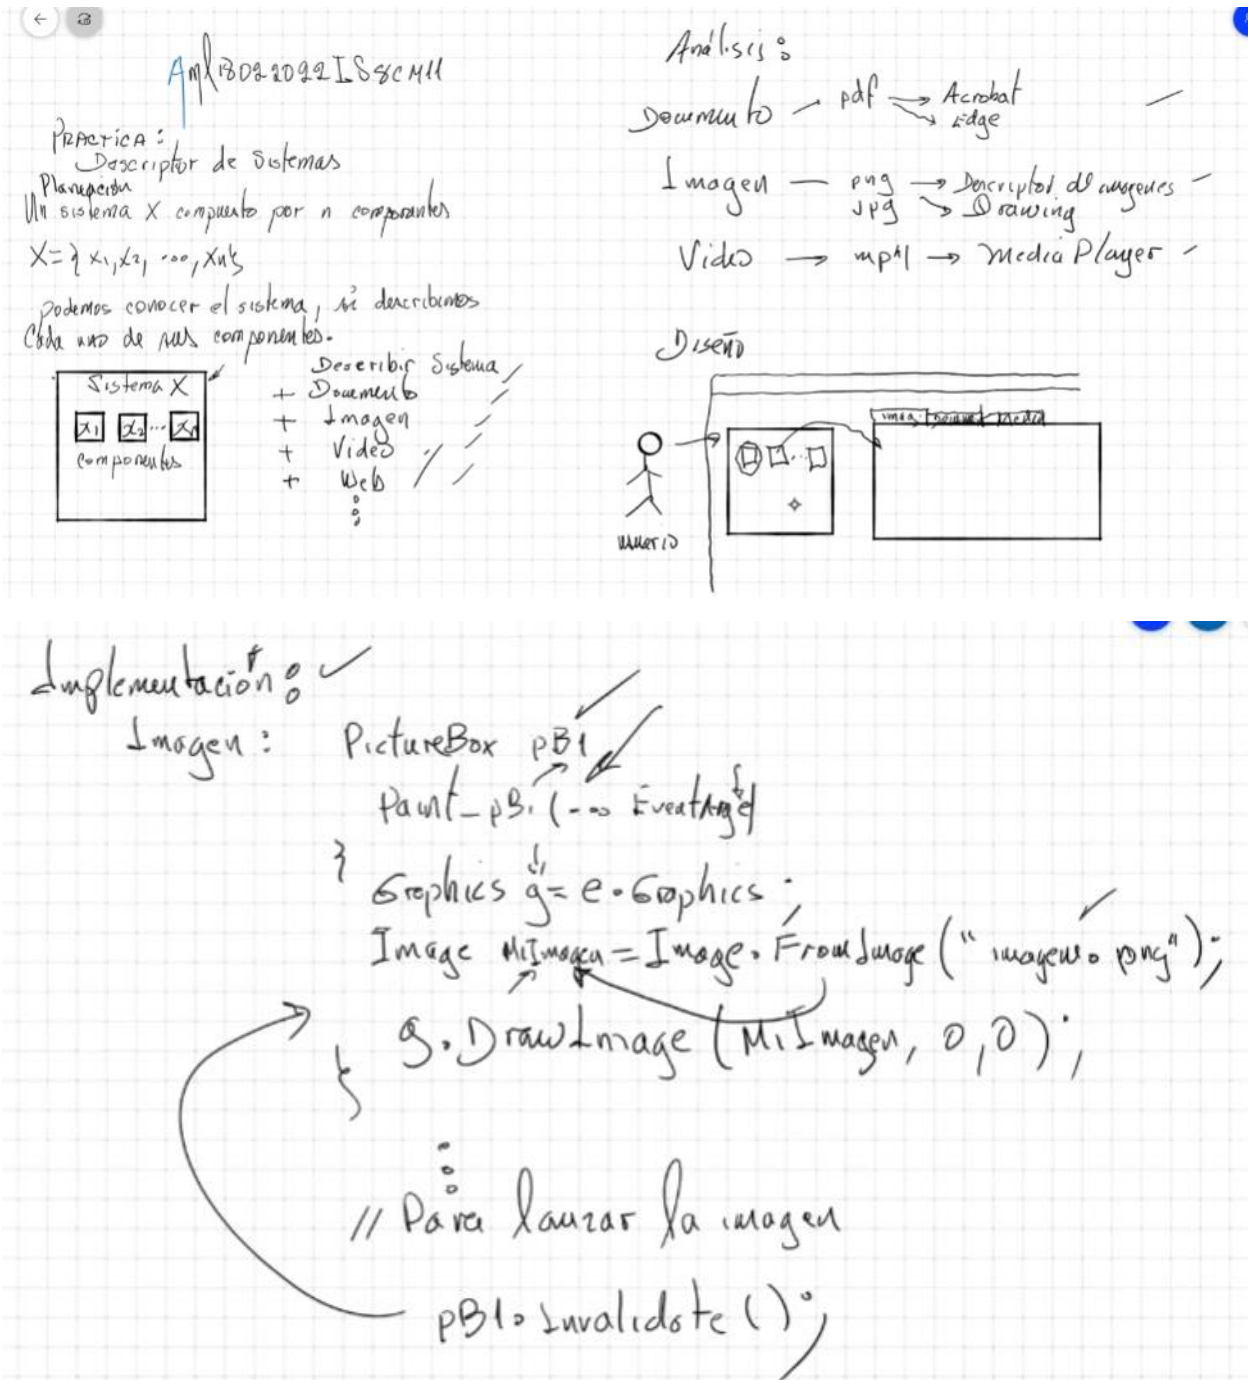 Apl18022022IS8CM11
PRACTICA:
Descriptor de Sistemas
Planeación
Un sistema X compuesto por n componentes
X={x1,x2, ..., xn}
podemos conocer el sistema, si describimos
Cada uno de sus componentes.
Sistema X
x1 x2 ... xn
componentes
Describir Sistema
+ Documento
+ Imagen
+ Video
+ Web
Análisis:
Documento — pdf → Acrobat
→ Edge
Imagen — png → Descriptor de imagenes
jpg → Drawing
Video → mp4 → Media Player
Diseño
imag. Docume Media
usuario
Implementación:
Imagen: PictureBox pB1
Paint_pB1(... EventArg e)
{
Graphics g= e.Graphics;
Image MiImagen=Image.FromImage("imagen.png");
g.DrawImage(MiImagen, 0,0);
}
// Para lanzar la imagen
pB1.Invalidate();